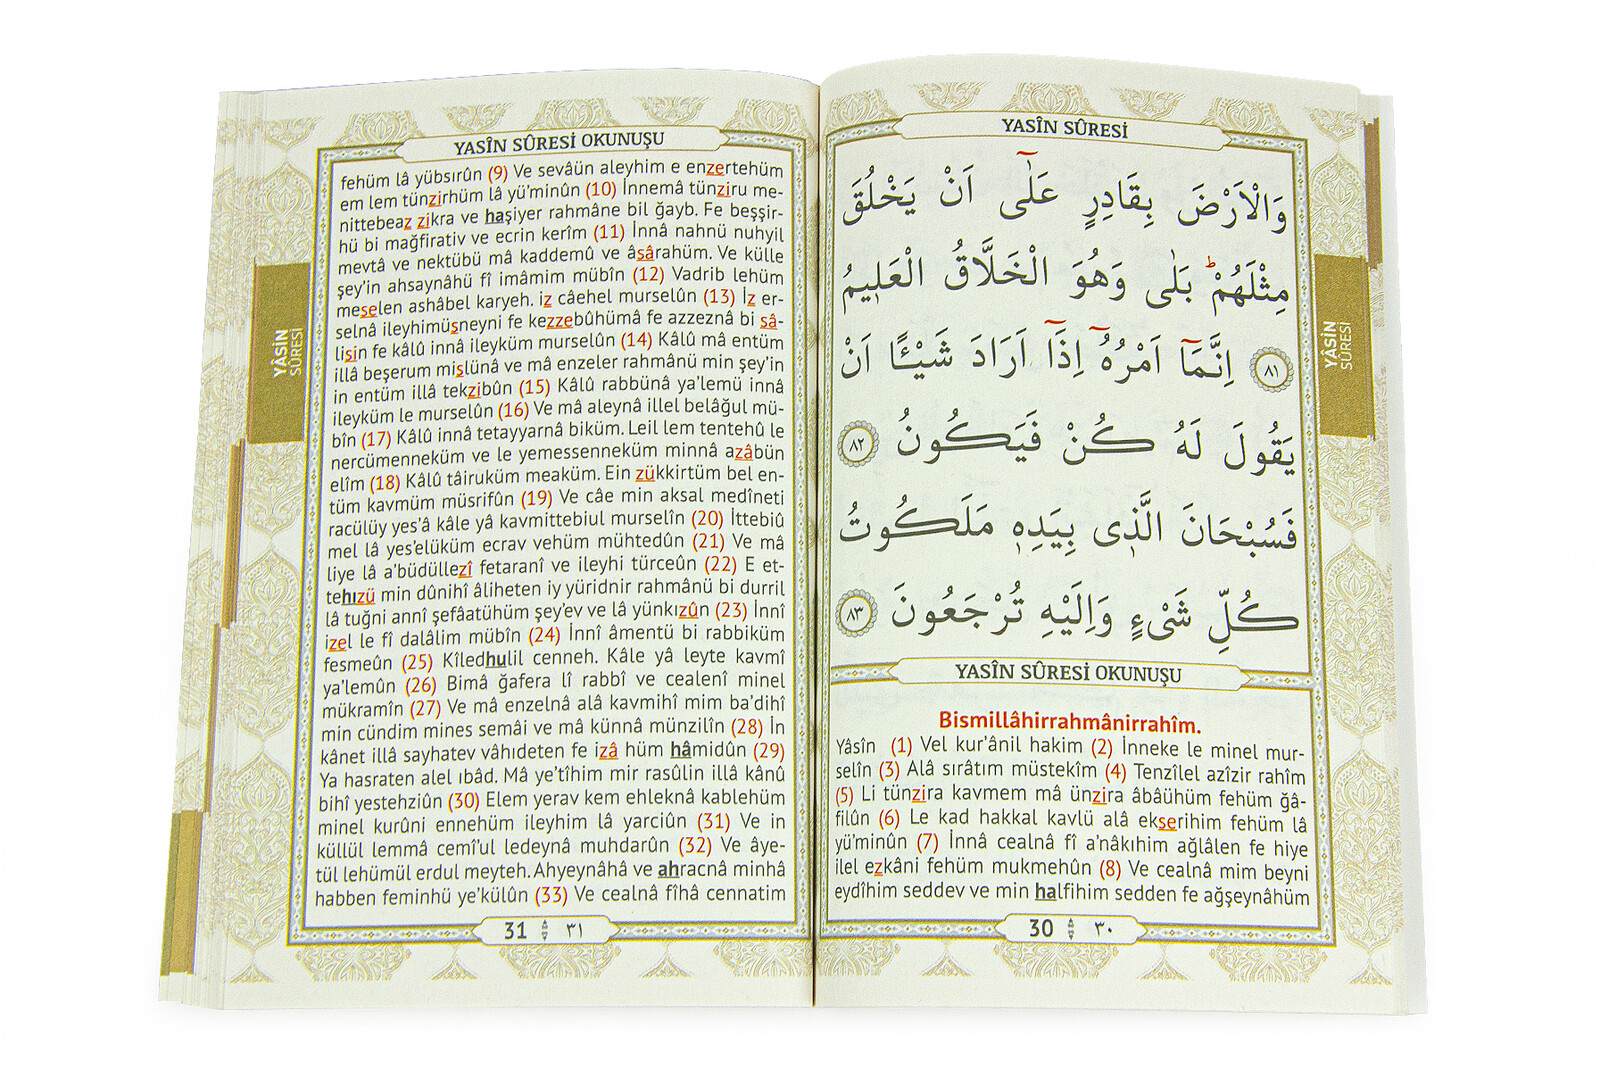 YASÎN SÛRESİ
وَالْاَرْضَ بِقَادِرٍ عَلٰٓى اَنْ يَخْلُقَ
مِثْلَهُمْ ؕ بَلٰى وَهُوَ الْخَلَّاقُ الْعَل۪يمُ
﴿٨١﴾ اِنَّمَٓا اَمْرُهُٓ اِذَٓا اَرَادَ شَيْـًٔا اَنْ
يَقُولَ لَهُ كُنْ فَيَكُونُ ﴿٨٢﴾
فَسُبْحَانَ الَّذ۪ى بِيَدِه۪ مَلَكُوتُ
كُلِّ شَىْءٍ وَاِلَيْهِ تُرْجَعُونَ ﴿٨٣﴾
YASÎN SÛRESİ OKUNUŞU
Bismillâhirrahmânirrahîm.
Yâsîn (1) Vel kur’ânil hakim (2) İnneke le minel mur-
selîn (3) Alâ sırâtım müstekîm (4) Tenzîlel azîzir rahîm
(5) Li tünzira kavmem mâ ünzira âbâühüm fehüm ğâ-
filûn (6) Le kad hakkal kavlü alâ ekserihim fehüm lâ
yü’minûn (7) İnnâ cealnâ fî a’nâkıhim ağlâlen fe hiye
ilel ezkâni fehüm mukmehûn (8) Ve cealnâ mim beyni
eydîhim seddev ve min halfihim sedden fe ağşeynâhüm
30 ٣٠
YÂSİN
SÛRESİ
YASÎN SÛRESİ OKUNUŞU
fehüm lâ yübsırûn (9) Ve sevâün aleyhim e enzertehüm
em lem tünzirhüm lâ yü’minûn (10) İnnemâ tünziru me-
nittebeaz zikra ve haşiyer rahmâne bil ğayb. Fe beşşir-
hü bi mağfirativ ve ecrin kerîm (11) İnnâ nahnü nuhyil
mevtâ ve nektübü mâ kaddemû ve âsârahüm. Ve külle
şey’in ahsaynâhü fî imâmim mübîn (12) Vadrib lehüm
meselen ashâbel karyeh. iz câehel murselûn (13) İz er-
selnâ ileyhimüsneyni fe kezzebûhümâ fe azzeznâ bi sâ-
lisin fe kâlû innâ ileyküm murselûn (14) Kâlû mâ entüm
illâ beşerum mislünâ ve mâ enzeler rahmânü min şey’in
in entüm illâ tekzibûn (15) Kâlû rabbünâ ya’lemü innâ
ileyküm le murselûn (16) Ve mâ aleynâ illel belâğul mü-
bîn (17) Kâlû innâ tetayyarnâ biküm. Leil lem tentehû le
nercümenneküm ve le yemessenneküm minnâ azâbün
elîm (18) Kâlû tâiruküm meaküm. Ein zükkirtüm bel en-
tüm kavmüm müsrifûn (19) Ve câe min aksal medîneti
racülüy yes’â kâle yâ kavmittebiul murselîn (20) İttebiû
mel lâ yes’elüküm ecrav vehüm mühtedûn (21) Ve mâ
liye lâ a’büdüllezî fetaranî ve ileyhi türceûn (22) E et-
tehızü min dûnihî âliheten iy yüridnir rahmânü bi durril
lâ tuğni annî şefâatühüm şey’ev ve lâ yünkızûn (23) İnnî
izel le fî dalâlim mübîn (24) İnnî âmentü bi rabbiküm
fesmeûn (25) Kîledhulil cenneh. Kâle yâ leyte kavmî
ya’lemûn (26) Bimâ ğafera lî rabbî ve cealenî minel
mükramîn (27) Ve mâ enzelnâ alâ kavmihî mim ba’dihî
min cündim mines semâi ve mâ künnâ münzilîn (28) İn
kânet illâ sayhatev vâhıdeten fe izâ hüm hâmidûn (29)
Ya hasraten alel ıbâd. Mâ ye’tîhim mir rasûlin illâ kânû
bihî yestehziûn (30) Elem yerav kem ehleknâ kablehüm
minel kurûni ennehüm ileyhim lâ yarciûn (31) Ve in
küllül lemmâ cemî’ul ledeynâ muhdarûn (32) Ve âye-
tül lehümül erdul meyteh. Ahyeynâhâ ve ahracnâ minhâ
habben feminhü ye’külûn (33) Ve cealnâ fîhâ cennatim
31 ٣١
YÂSİN
SÛRESİ